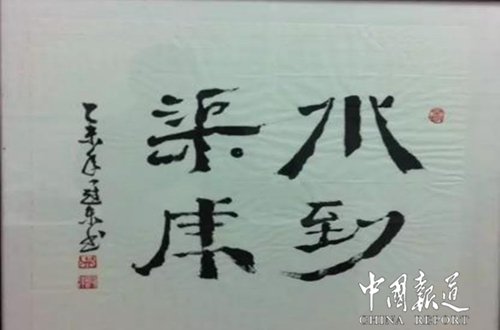 水到
渠成
乙未年
中國報道
CHINA REPORT